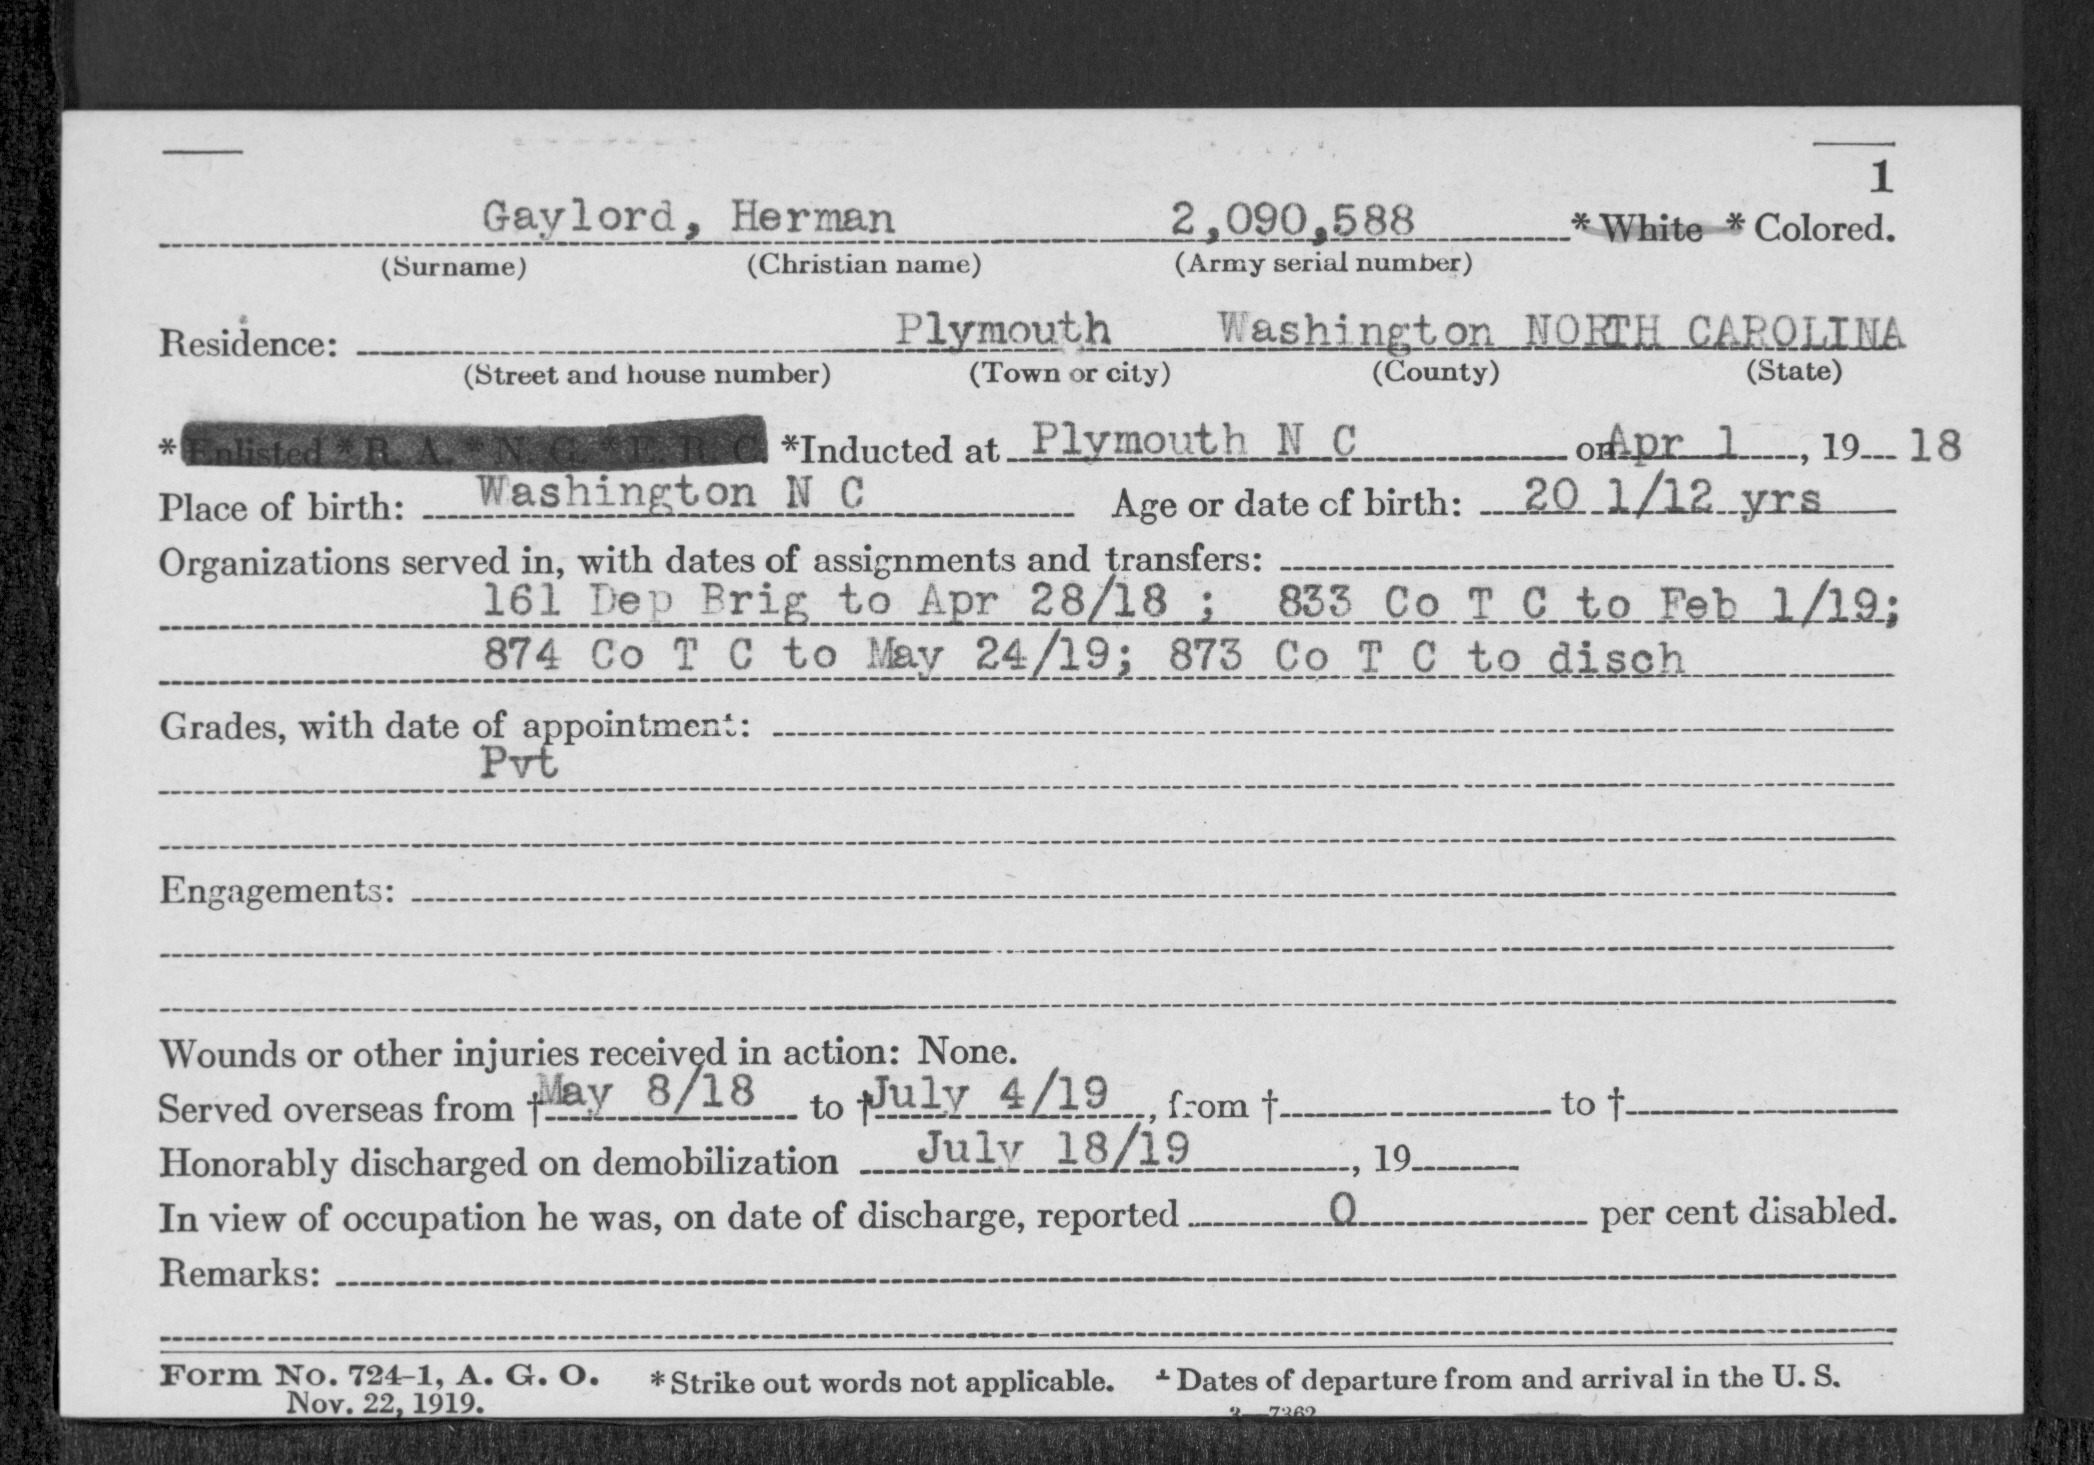 1
Gaylord, Herman 2,090,588 * White * Colored.
(Surname) (Christian name) (Army serial number)
Residence: Plymouth Washington NORTH CAROLINA
(Street and house number) (Town or city) (County) (State)
* Enlisted * R. A. * N. G. * E. R. C. *Inducted at Plymouth N C on Apr 1, 19 18
Place of birth: Washington N C Age or date of birth: 20 1/12 yrs
Organizations served in, with dates of assignments and transfers:
161 Dep Brig to Apr 28/18 ; 833 Co T C to Feb 1/19;
874 Co T C to May 24/19; 873 Co T C to disch
Grades, with date of appointment:
Pvt
Engagements:
Wounds or other injuries received in action: None.
Served overseas from † May 8/18 to † July 4/19, from † to †
Honorably discharged on demobilization July 18/19, 19
In view of occupation he was, on date of discharge, reported 0 per cent disabled.
Remarks:
Form No. 724-1, A. G. O. * Strike out words not applicable. † Dates of departure from and arrival in the U. S.
Nov. 22, 1919. 3—7362